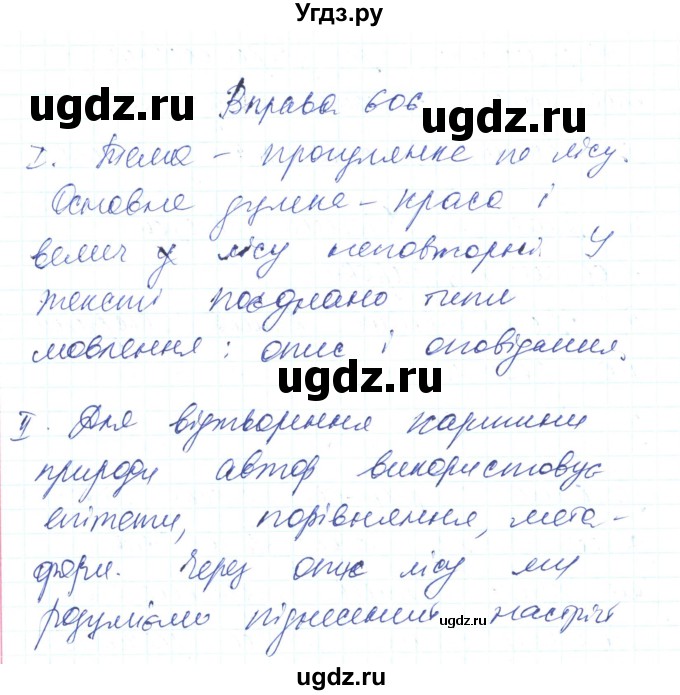 Угдз.ру
ugdz.ru
Вправа 606
ugdz.ru
I. Тема – прогулянка по лісу.
Основна думка – краса і
велич у лісу неповторні. У
тексті поєднано типи
мовлення: опис і оповідання.
ugdz.ru
II. Для відтворення картини
природи автор використовує
ugdz.ru
епітети, порівняння, мета-
фори. Через опис лісу ми
розуміємо піднесений настрій
ugdz.ru
ugdz.ru